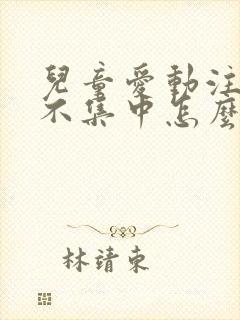 兒童愛動注
不集中怎麼
林靖東